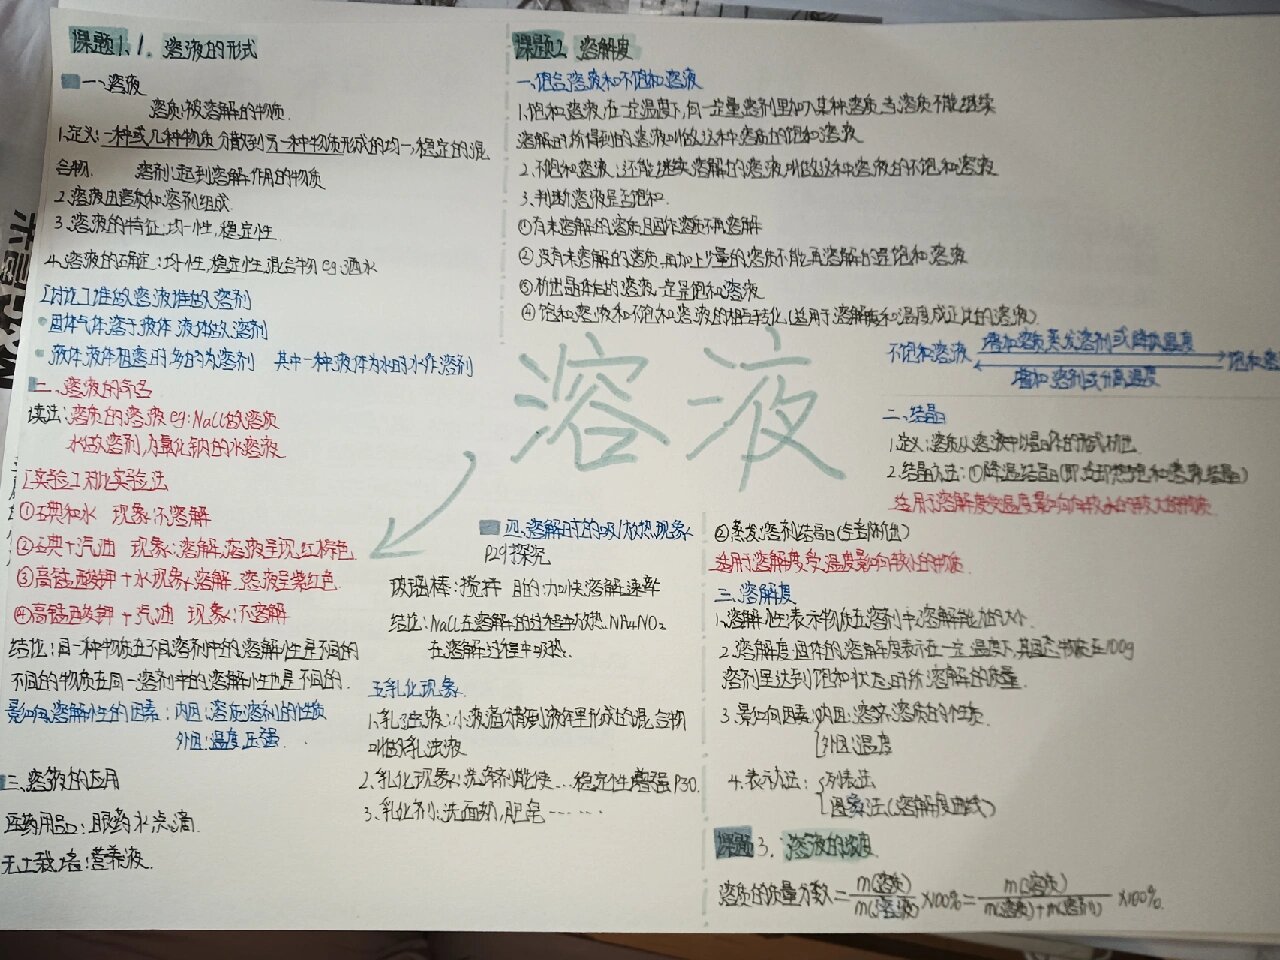 课题1、1. 溶液的形式
一、溶液
溶质:被溶解的物质.
1.定义:一种或几种物质分散到另一种物质形成的均一,稳定的混
合物. 溶剂:起到溶解作用的物质
2.溶液由溶质和溶剂组成.
3.溶液的特征:均一性,稳定性.
4.溶液的:均一性,稳定性,混合物 eg:酒水
[讨论]谁做溶液谁做溶剂
固体气体溶于液体 液体做溶剂
液体液体相溶时多的为溶剂 其中一种液体为水时水作溶剂
二、溶液的命名
读法:溶质的溶液 eg:NaCl做溶质
水做溶剂,为氯化钠的水溶液
[实验]对比实验法
①碘和水 现象:不溶解
②碘+汽油 现象:溶解,溶液呈现红棕色
③高锰酸钾+水现象:溶解.溶液呈紫红色
④高锰酸钾+汽油 现象:不溶解
结论:同一种物质在不同溶剂中的溶解性是不同的
不同的物质在同一溶剂中的溶解性也是不同的.
影响溶解性的因素:内因:溶质溶剂的性质
外因:温度,压强.
三、溶液的应用
医药用品:眼药水点滴.
无土栽培:营养液.
四、溶解时的吸/放热现象
P29探究
玻璃棒:搅拌 目的:加快溶解速率
结论:NaCl在溶解的过程中放热.NH4NO₂
在溶解过程中吸热.
五乳化现象
1.乳浊液:小液滴分散到液体里形成的混合物
叫做乳浊液
2.乳化现象:洗涤剂能使…稳定性增强P30.
3.乳化剂:洗面奶,肥皂……
溶液
课题2 溶解度
一、饱合溶液和不饱和溶液
1.饱和溶液,在一定温度下,向一定量溶剂里加入某种溶质,当溶质不能继续
溶解时所得到的溶液叫做这种溶质的饱和溶液
2.不饱和溶液:还能继续溶解的溶液叫做这种溶液的不饱和溶液
3.判断溶液是否饱和.
①有未溶解的溶质且固体溶质不再溶解
②没有未溶解的溶质,再加上少量的溶质不能再溶解的是饱和溶液
③析出晶体后的溶液一定是饱和溶液
④饱和溶液和不饱和溶液的相互转化,(适用于溶解度和温度成正比的溶液)
不饱和溶液 增加溶质蒸发溶剂或降低温度 饱和溶
增加溶剂或升高温度
二、结晶
1.定义:溶质从溶液中以晶体的形式析出
2.结晶方法:①降温结晶(即冷却热饱和溶液结晶)
适用于溶解度受温度影响较大的物质
②蒸发溶剂结晶(全部析出)
适用于溶解度受温度影响较小的物质.
三、溶解度
1.溶解性:表示物质在溶剂中溶解能力的大小.
2.溶解度:固体的溶解度表示在一定温度下,某固态物质在100g
溶剂里达到饱和状态时所溶解的质量.
3.影响因素:内因:溶剂溶质的性质.
外因:温度
4.表示方法:列表法
图象法(溶解度曲线)
课题3. 溶液的浓度
溶质的质量分数=m(溶质)/m(溶液)×100%=m(溶质)/m(溶质)+m(溶剂) ×100%.